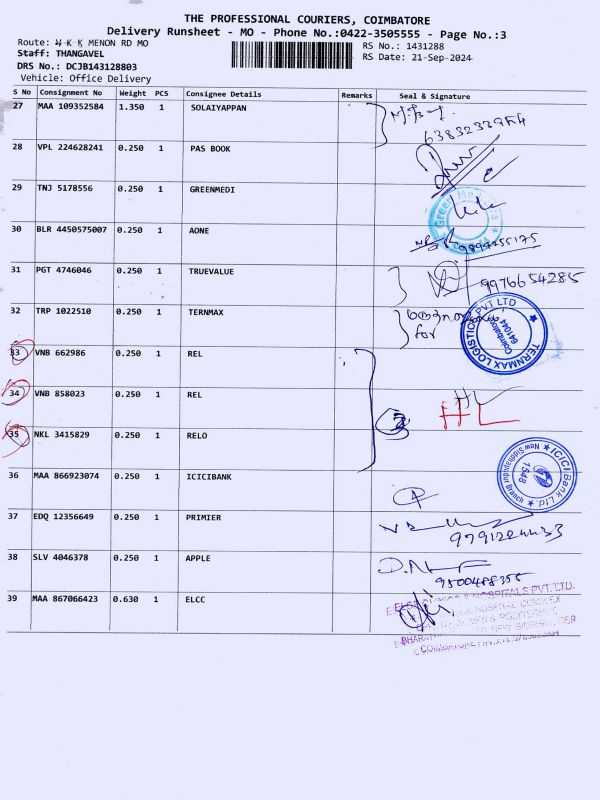 THE PROFESSIONAL COURIERS, COIMBATORE
Delivery Runsheet - MO - Phone No.:0422-3505555 - Page No.:3
Route: K K MENON RD MO
RS No.: 1431288
Staff: THANGAVEL
RS Date: 21-Sep-2024
DRS No.: DCJB143128803
Vehicle: Office Delivery
S No Consignment No Weight PCS Consignee Details Remarks Seal & Signature
27 MAA 109352584 1.350 1 SOLAIYAPPAN
28 VPL 224628241 0.250 1 PAS BOOK
29 TNJ 5178556 0.250 1 GREENMEDI
30 BLR 4450575007 0.250 1 AONE
9894255175
31 PGT 4746046 0.250 1 TRUEVALUE
9976654285
32 TRP 1022510 0.250 1 TERNMAX
for
TERNMAX LOGISTICS PVT LTD
Coimbatore
641044
33 VNB 662986 0.250 1 REL
34 VNB 858023 0.250 1 REL
HL
35 NKL 3415829 0.250 1 RELO
36 MAA 866923074 0.250 1 ICICIBANK
ICICI Bank Ltd. ★ New Siddhapudur Branch ★
1548
37 EDQ 12356649 0.250 1 PRIMIER
38 SLV 4046378 0.250 1 APPLE
39 MAA 867066423 0.630 1 ELCC